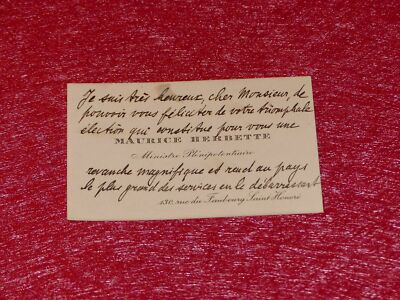 Je suis très heureux, cher Monsieur, de
pouvoir vous féliciter de votre triomphale
élection qui constitue pour vous une
MAURICE HERBETTE
Ministre Plénipotentiaire
revanche magnifique et rend au pays
le plus grand des services en le débarrassant
130, rue du Faubourg Saint Honoré